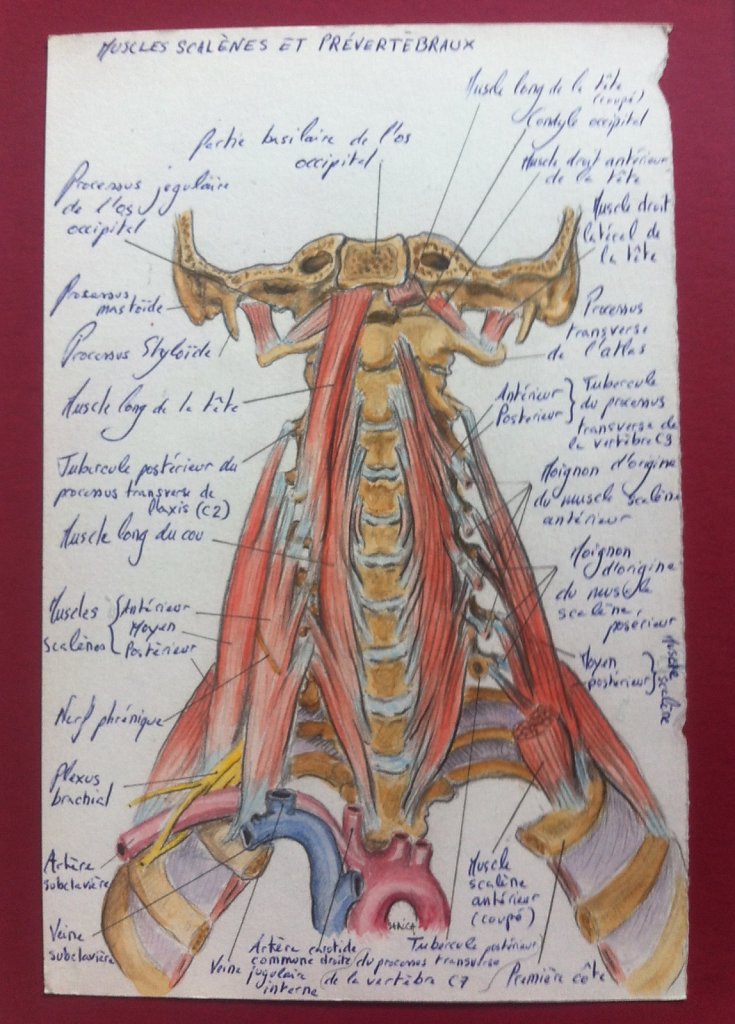 MUSCLES SCALÈNES ET PRÉVERTÉBRAUX
Muscle long de la tête
(coupé)
Condyle occipital
Partie basilaire de l'os
occipital
Muscle droit antérieur
de la tête
Processus jugulaire
de l'os
occipital
Muscle droit
latéral de
la tête
Processus
mastoïde
Processus Styloïde
Processus
transverse
de l'atlas
Muscle long de la tête
Antérieur
Postérieur
Tubercule
du processus
transverse de
la vertèbre C3
Tubercule postérieur du
processus transverse de
l'axis (C2)
Muscle long du cou
Moignon d'origine
du muscle scalène
antérieur
Moignon
d'origine
du muscle
scalène,
posérieur
Muscles
scalènes
Antérieur
Moyen
Postérieur
Moyen
postérieur
Muscle
scalène
Nerf phrénique
Plexus
brachial
Artère
subclavière
Veine
subclavière
Veine
jugulaire
interne
Artère carotide
commune droite
Tubercule postérieur
du processus transverse
de la vertèbra C7
Muscle
scalène
antérieur
(coupé)
Première côte